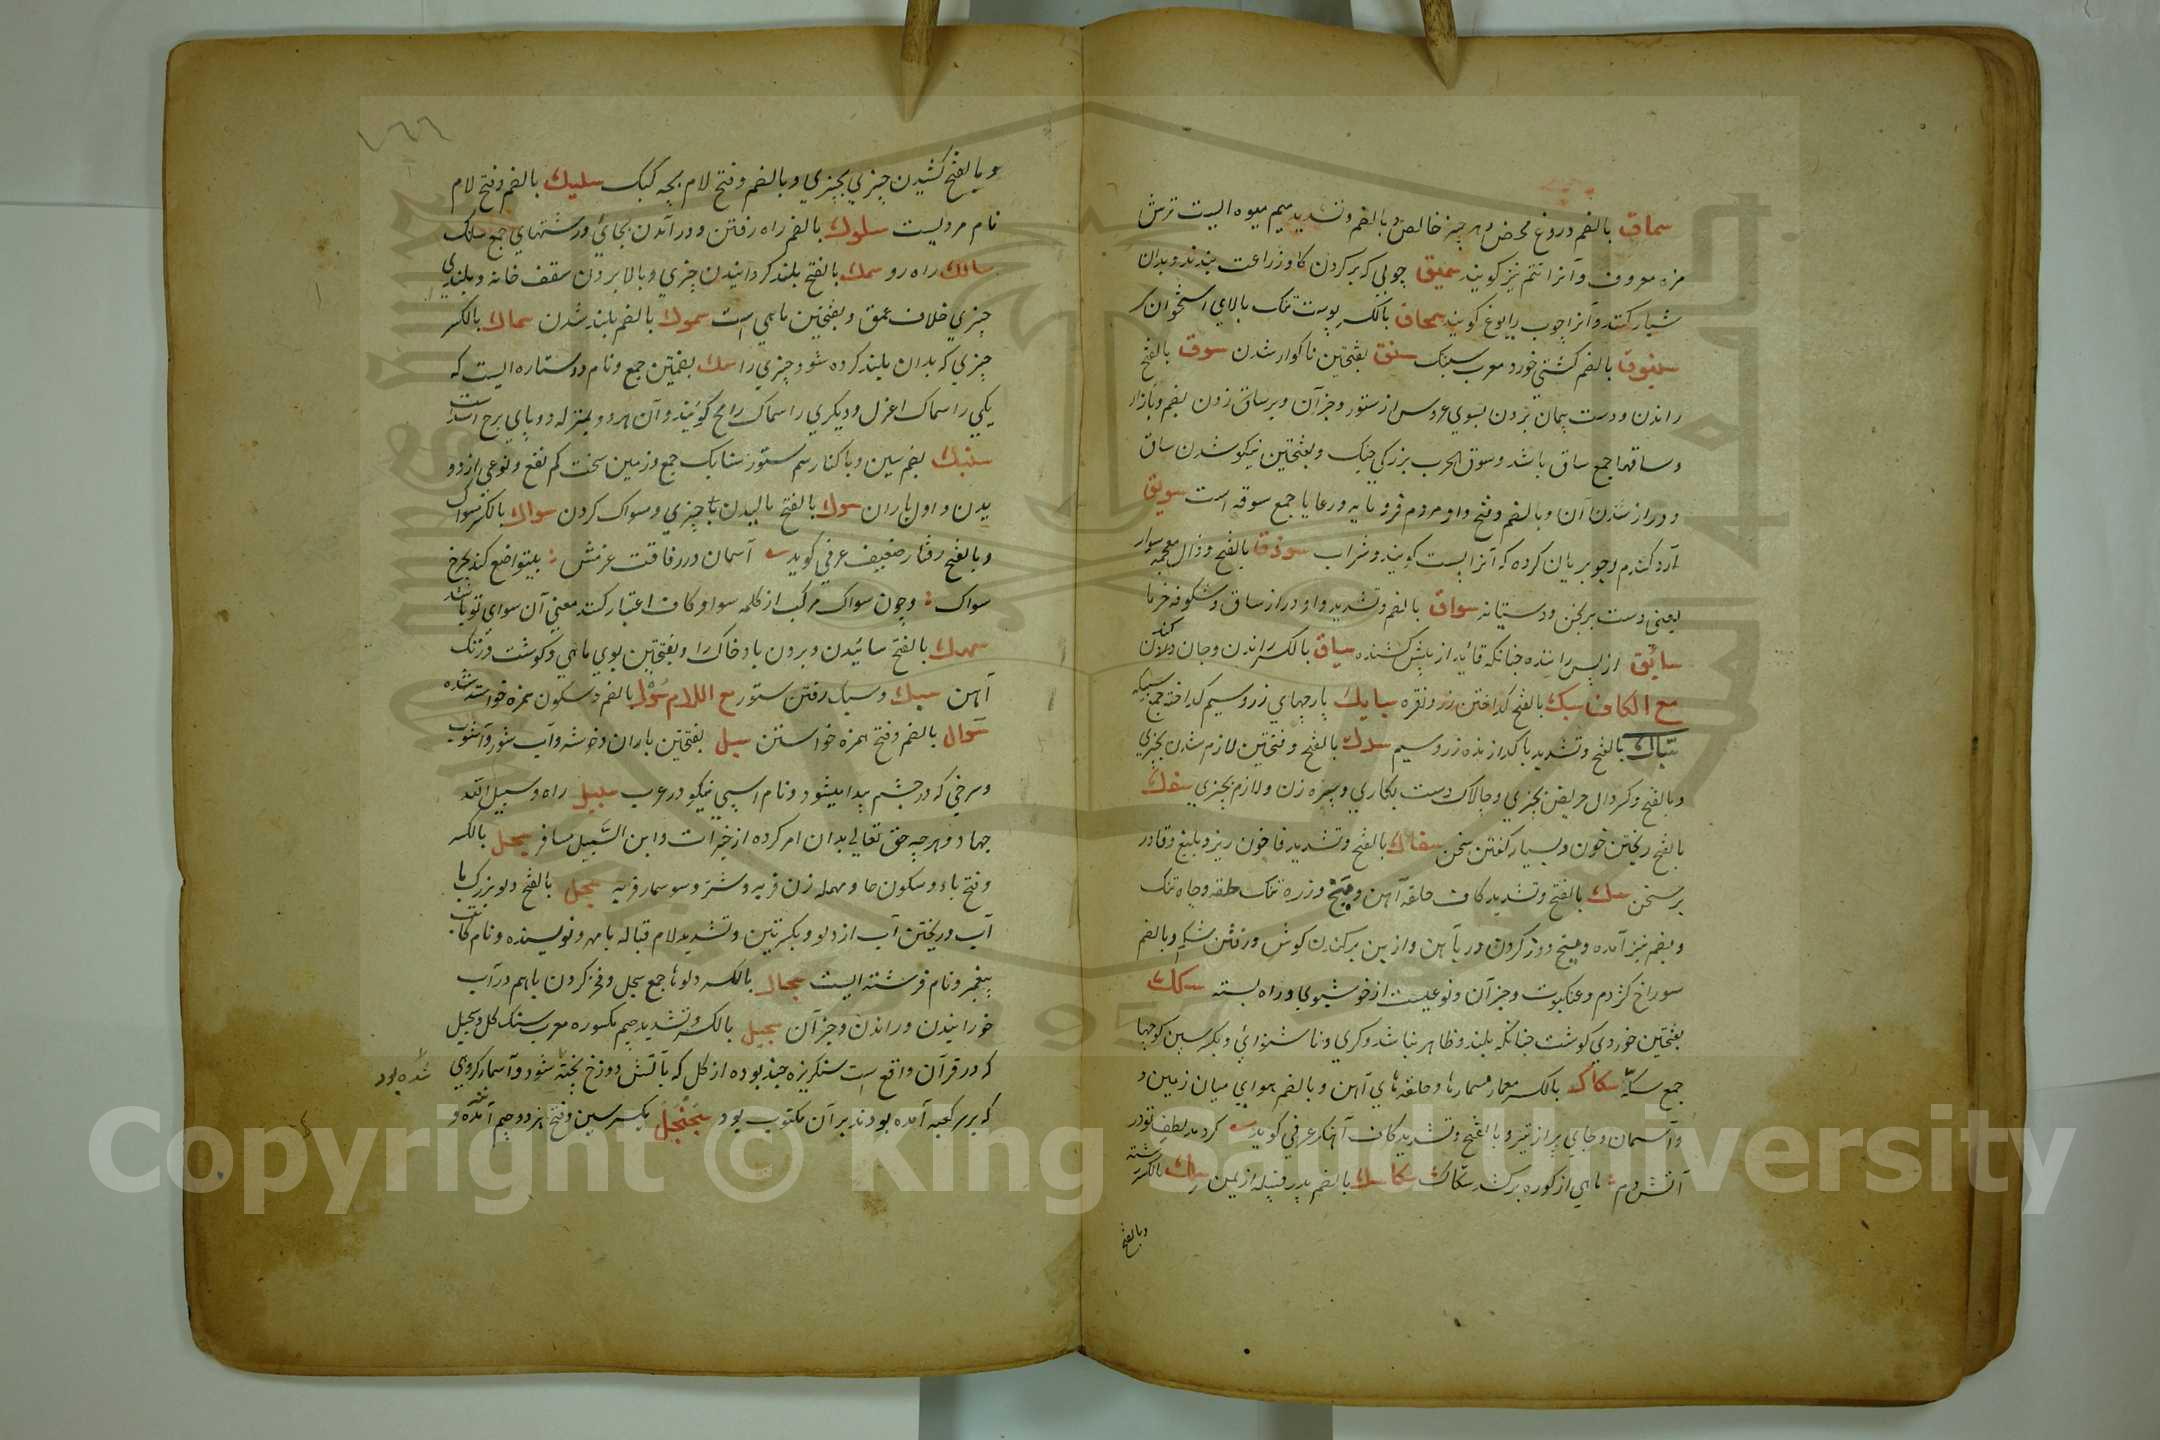 سماق بالضم دروغ محض و هر چیز خالص و بالضم و تشدید میم میوه ایست ترش
مزه معروف و آنرا تتم نیز کویند سمیق چوبی که بر کردن کاو زراعت بندند و بدان
شیار کنند و آنرا چوب را یوغ کویند سمحاق بالکسر پوست تنک بالای استخوان سر
سنبوق بالضم کشتی خورد معرب سنبک سنق بفتحتین ناکوار شدن سوق بالفتح
راندن و دست پیمان بردن بسوی عروس از ستور و جز آن و بر ساق زدن بضم و بازار
و ساقها جمع ساق باشد و سوق الحرب بزرکی جنک و بفتحتین نیکو شدن ساق
و دراز شدن آن و بالضم و فتح واو مردم فرومایه و رعایا جمع سوقه است سویق
آرد کندم و جو بریان کرده که آنرا پست کویند و شراب سوذق بالفتح و ذال معجمه سوار
یعنی دست برنجن و دستیانه سواق بالضم و تشدید واو دراز ساق و شکوفه خرما
سائق از پس راننده چنانکه قائد از پیش کشنده سیاق بالکسر راندن و جان دادن کندن
مع الکاف سبک بالفتح کداختن زر و نقره سبایک پارچهای زر و سیم کداخته جمع سبیکه
سباک بالفتح و تشدید با کدازنده زر و سیم سدک بالفتح و فتحتین لازم شدن بچیزی
و بالفتح و کسر دال حریص بچیزی و چالاک دست بکاری و نیزه زن و لازم بچیزی سفک
بالفتح ریختن خون و بسیار کفتن سخن سفاک بالفتح و تشدید فا خون ریز و بلیغ و قادر
بر سخن سک بالفتح و تشدید کاف حلقه آهن و میخ و زره تنک حلقه و چاه تنک
و بضم نیز آمده و میخ دوز کردن در بآهن و از بن برکندن کوش و رفتن شکم و بالضم
سوراخ کژدم و عنکبوت و جز آن و نوعیست از خوشبوی و راه بسته سکک
بفتحتین خوردی کوشت چنانکه بلند و ظاهر نباشد و کری و ناشنوائی و بکسر سین کوچها
جمع سکه سکاک بالکسر مسمارها و حلقه های آهن و بالضم هوای میان زمین و
و آسمان و جای پر از تیر و بالفتح و تشدید کاف آهنکر عرفی کوید کردید لطف تو در
آتش دم ماهی از کوره برکشد سکاک سکاسک بالضم پدر قبیله از یمن سلک بالکسر رشته
و بالفتح
١٦٦
و بالفتح کشیدن چیزی بچیزی و بالضم و فتح لام بچه کبک سلیک بالضم و فتح لام
نام مردیست سلوک بالضم راه رفتن و در آمدن بجائی و رشتهای جمع سلک
سالک راه رو سمک بالفتح بلند کردانیدن چیزی و بالا بردن سقف خانه و بلندی
چیزی خلاف عمق و بفتحتین ماهی است سموک بالضم بلند شدن سماک بالکسر
چیزی که بدان بلند کرده شود چیزی را سمک بضمتین جمع و نام دو ستاره ایست که
یکی را سماک اعزل و دیکری را سماک رامح کویند و آن هر دو بمنزله دو پای برج اسد است
سنبک بضم سین و با کنار سم ستور سنابک جمع و زمین سخت کم نفع و نوعی از دو
یدن و اول باران سوک بالفتح مالیدن با چیزی و مسواک کردن سواک بالکسر مسواک
و بالفتح رفتار ضعیف عرفی کوید آسمان در رفاقت عزمش بتواضع کند چرخ
سواک و چون سواک مرکب از کلمه سوا و کاف اعتبار کنند معنی آن سوای تو باشد
سهک بالفتح سائیدن و بردن باد خاک را و بفتحتین بوی ماهی و کوشت و زنک
آهن سبک و سبک رفتن ستور مع اللام سؤل بالضم و سکون همزه خواسته شده
سؤال بالضم و فتح همزه خواستن سبل بفتحتین باران و خوشه و آب شور و آشوب
و سرخی که در چشم پیدا میشود و نام اسپی نیکو در عرب سبیل راه و سبیل الله
جهاد و هر چه حق تعالی بدان امر کرده از خیرات و ابن السبیل مسافر سبحل بالکسر
و فتح باء و سکون حا مهمله زن فربه و شتر و سوسمار فربه سجل بالفتح دلو بزرک با
آب و ریختن آب از دلو و بکسرتین و تشدید لام قباله بامهر و نویسنده و نام کاتب
پیغمبر و نام فرشته ایست سجال بالکسر دلوها جمع سجل و فخر کردن باهم در آب
خورانیدن و راندن و جز آن سجیل بالکسر و تشدید جیم مکسوره معرب سنک کل و سجیل
که در قرآن واقع است سنکریزه چند بوده از کل که بآتش دوزخ پخته شود و آسمار کروهی
شده بود
که بر سر کعبه آمده بودند بر آن مکتوب بود سجنجل بکسر سین و فتح هر دو جیم آئینه و
Copyright © King Saud University
1957